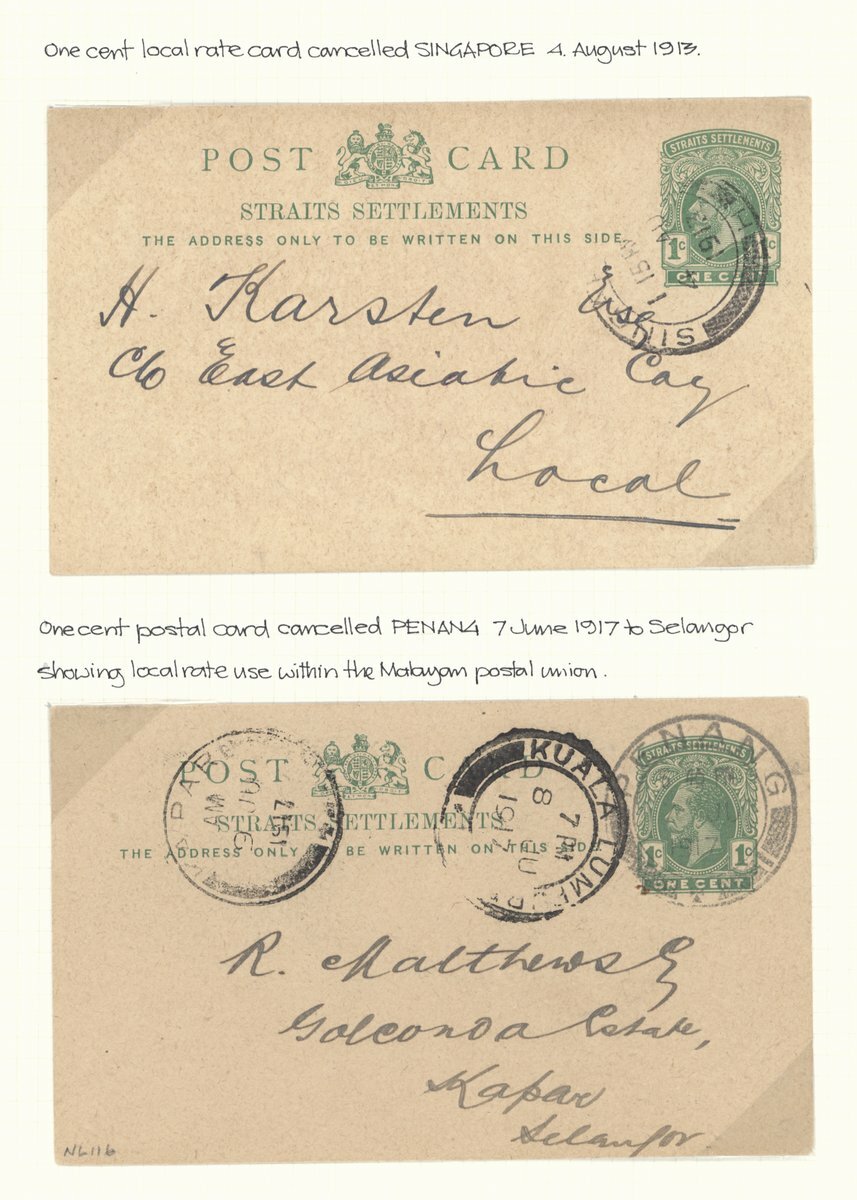 One cent local rate card cancelled SINGAPORE 4. August 1913.
POST CARD
STRAITS SETTLEMENTS
THE ADDRESS ONLY TO BE WRITTEN ON THIS SIDE
STRAITS SETTLEMENTS
1c
ONE CE
1 15
SING
H. Karsten Esq
c/o East Asiatic Coy
Local
One cent postal card cancelled PENANG 7 June 1917 to Selangor
showing local rate use within the Malayan postal union.
POST CARD
STRAITS SETTLEMENTS
THE ADDRESS ONLY BE WRITTEN ON THIS SIDE
KAPAR
AM
9 JU
1917
KUALA LUMPUR
7 PM
8 JU
1917
PENANG
STRAITS SETTLEMENTS
1c 1c
ONE CENT
R. Matthews Eq
Golconda Estate,
Kapar
Selangor.
NL116